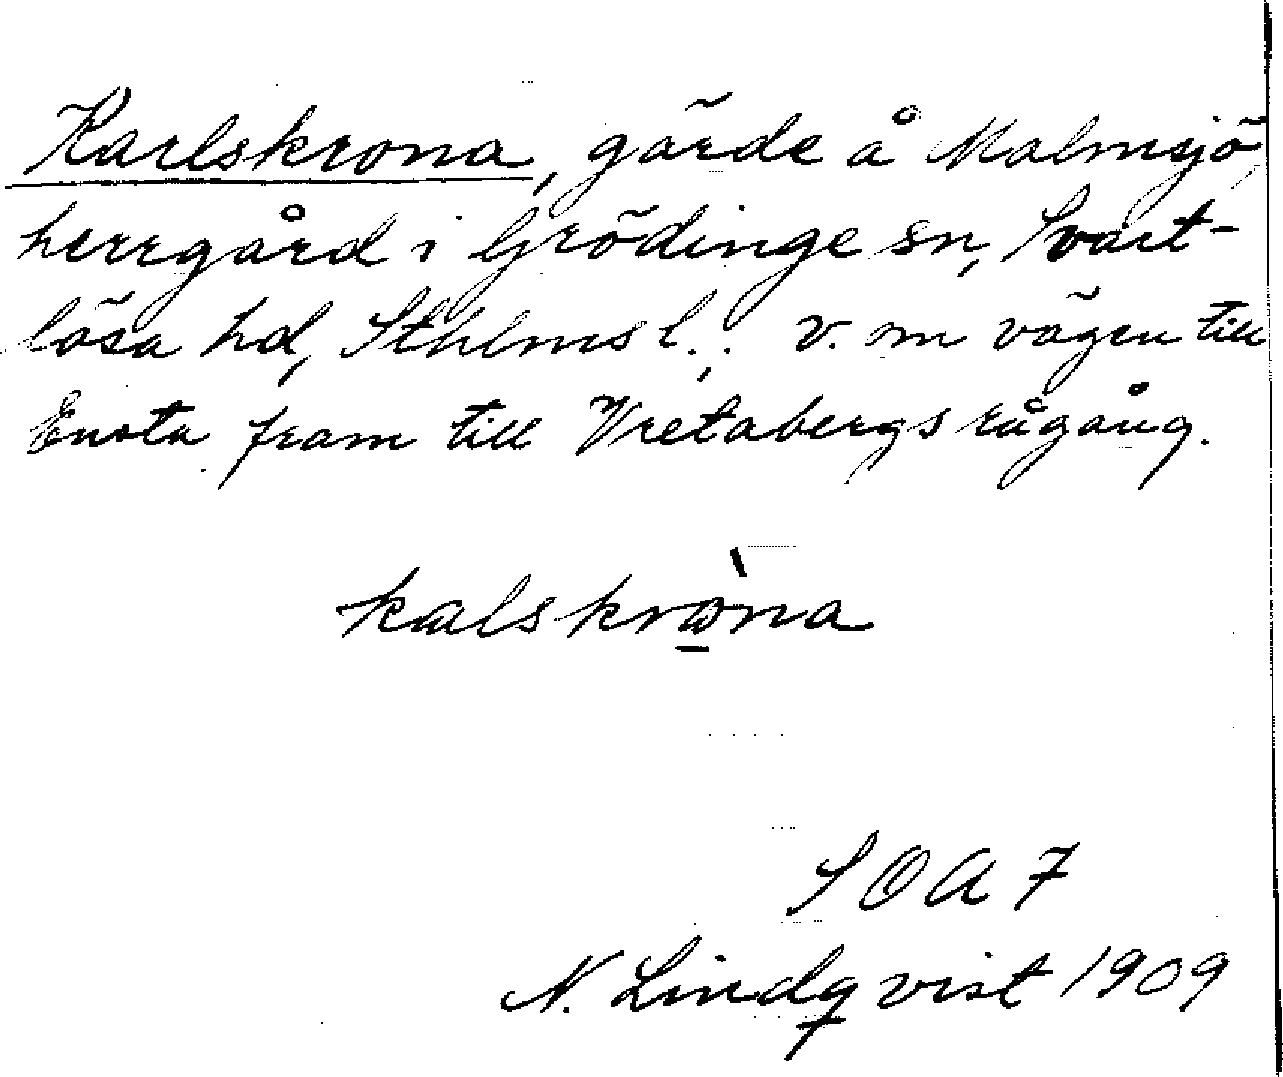 Karlskrona, gärde å Malmsjö
herrgård i Grödinge sn, Svart-
lösa hd, Sthlms l.; v. om vägen till
Ensta fram till Vretabergs rågång.
kalskròna
SOA 7
N. Lindqvist 1909